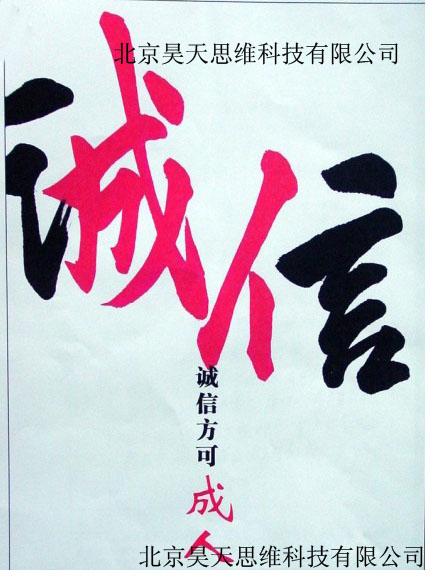 北京昊天思维科技有限公司
诚信
诚信方可成人
北京昊天思维科技有限公司